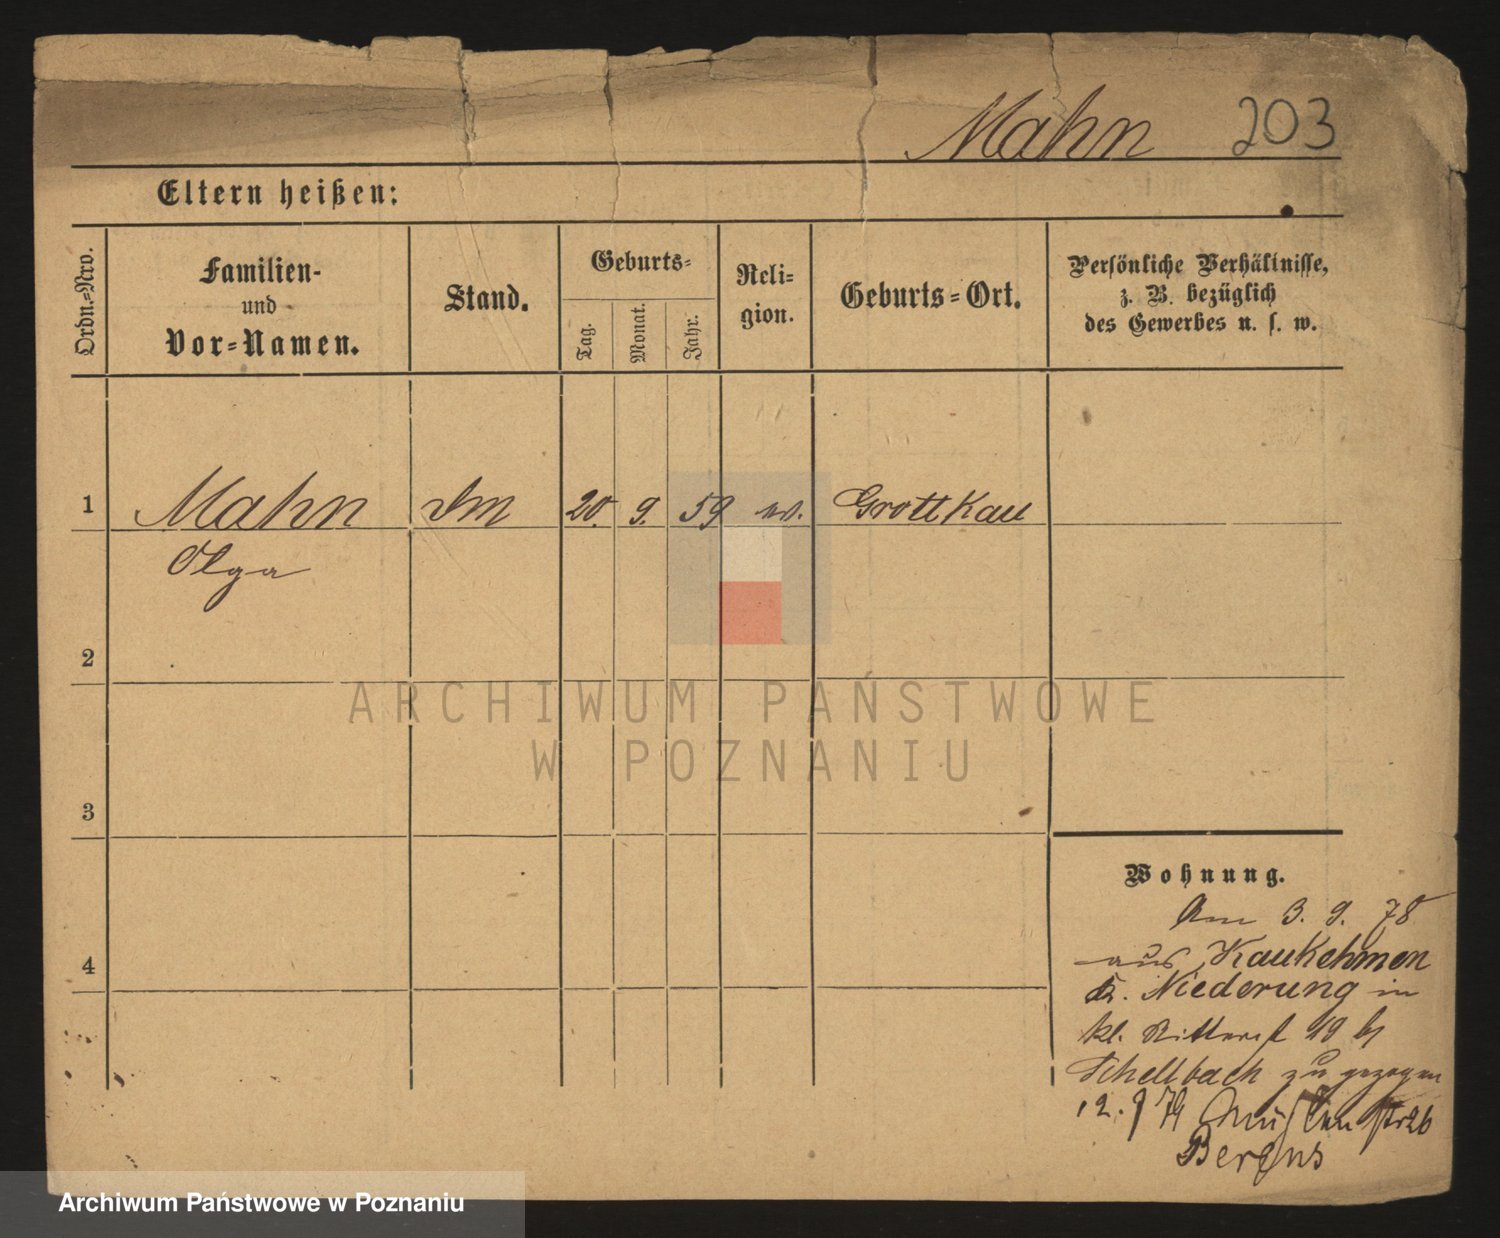 Mahn 203
Eltern heißen:
Ordn.-Nro.
Familien-
und
Vor-Namen.
Stand.
Geburts-
Tag.
Monat.
Jahr.
Reli-
gion.
Geburts-Ort.
Persönliche Verhältnisse,
z. B. bezüglich
des Gewerbes u. s. w.
1 Mahn 20. 9. 59 Grottkau
Olga
2
3
4
Wohnung.
Am 3. 9. 78
aus Kaukehmen
Niederung in
kl. Ritterst 19 b/
Schellbach zu gezogen
12. 9 79 Mühlen str 26
ARCHIWUM PAŃSTWOWE
W POZNANIU
Archiwum Państwowe w Poznaniu